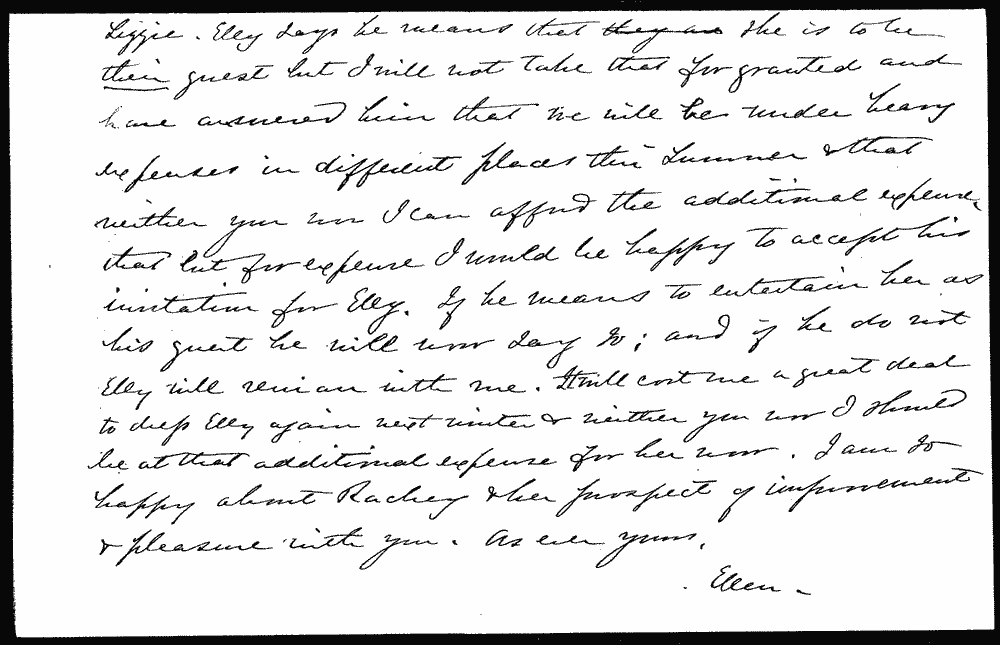 Lizzie. Elly says he means that they are she is to be
their guest but I will not take that for granted and
have answered him that we will be under heavy
expenses in different places this Summer & that
neither you nor I can afford the additional expense,
that but for expense I would be happy to accept his
invitation for Elly. If he means to entertain her as
his guest he will now say so; and if he do not
Elly will remain with me. It will cost me a great deal
to dress Elly again next winter & neither you nor I should
be at that additional expense for her now. I am so
happy about Rachey & her prospect of improvement
& pleasure with you. As ever yours,
Ellen -